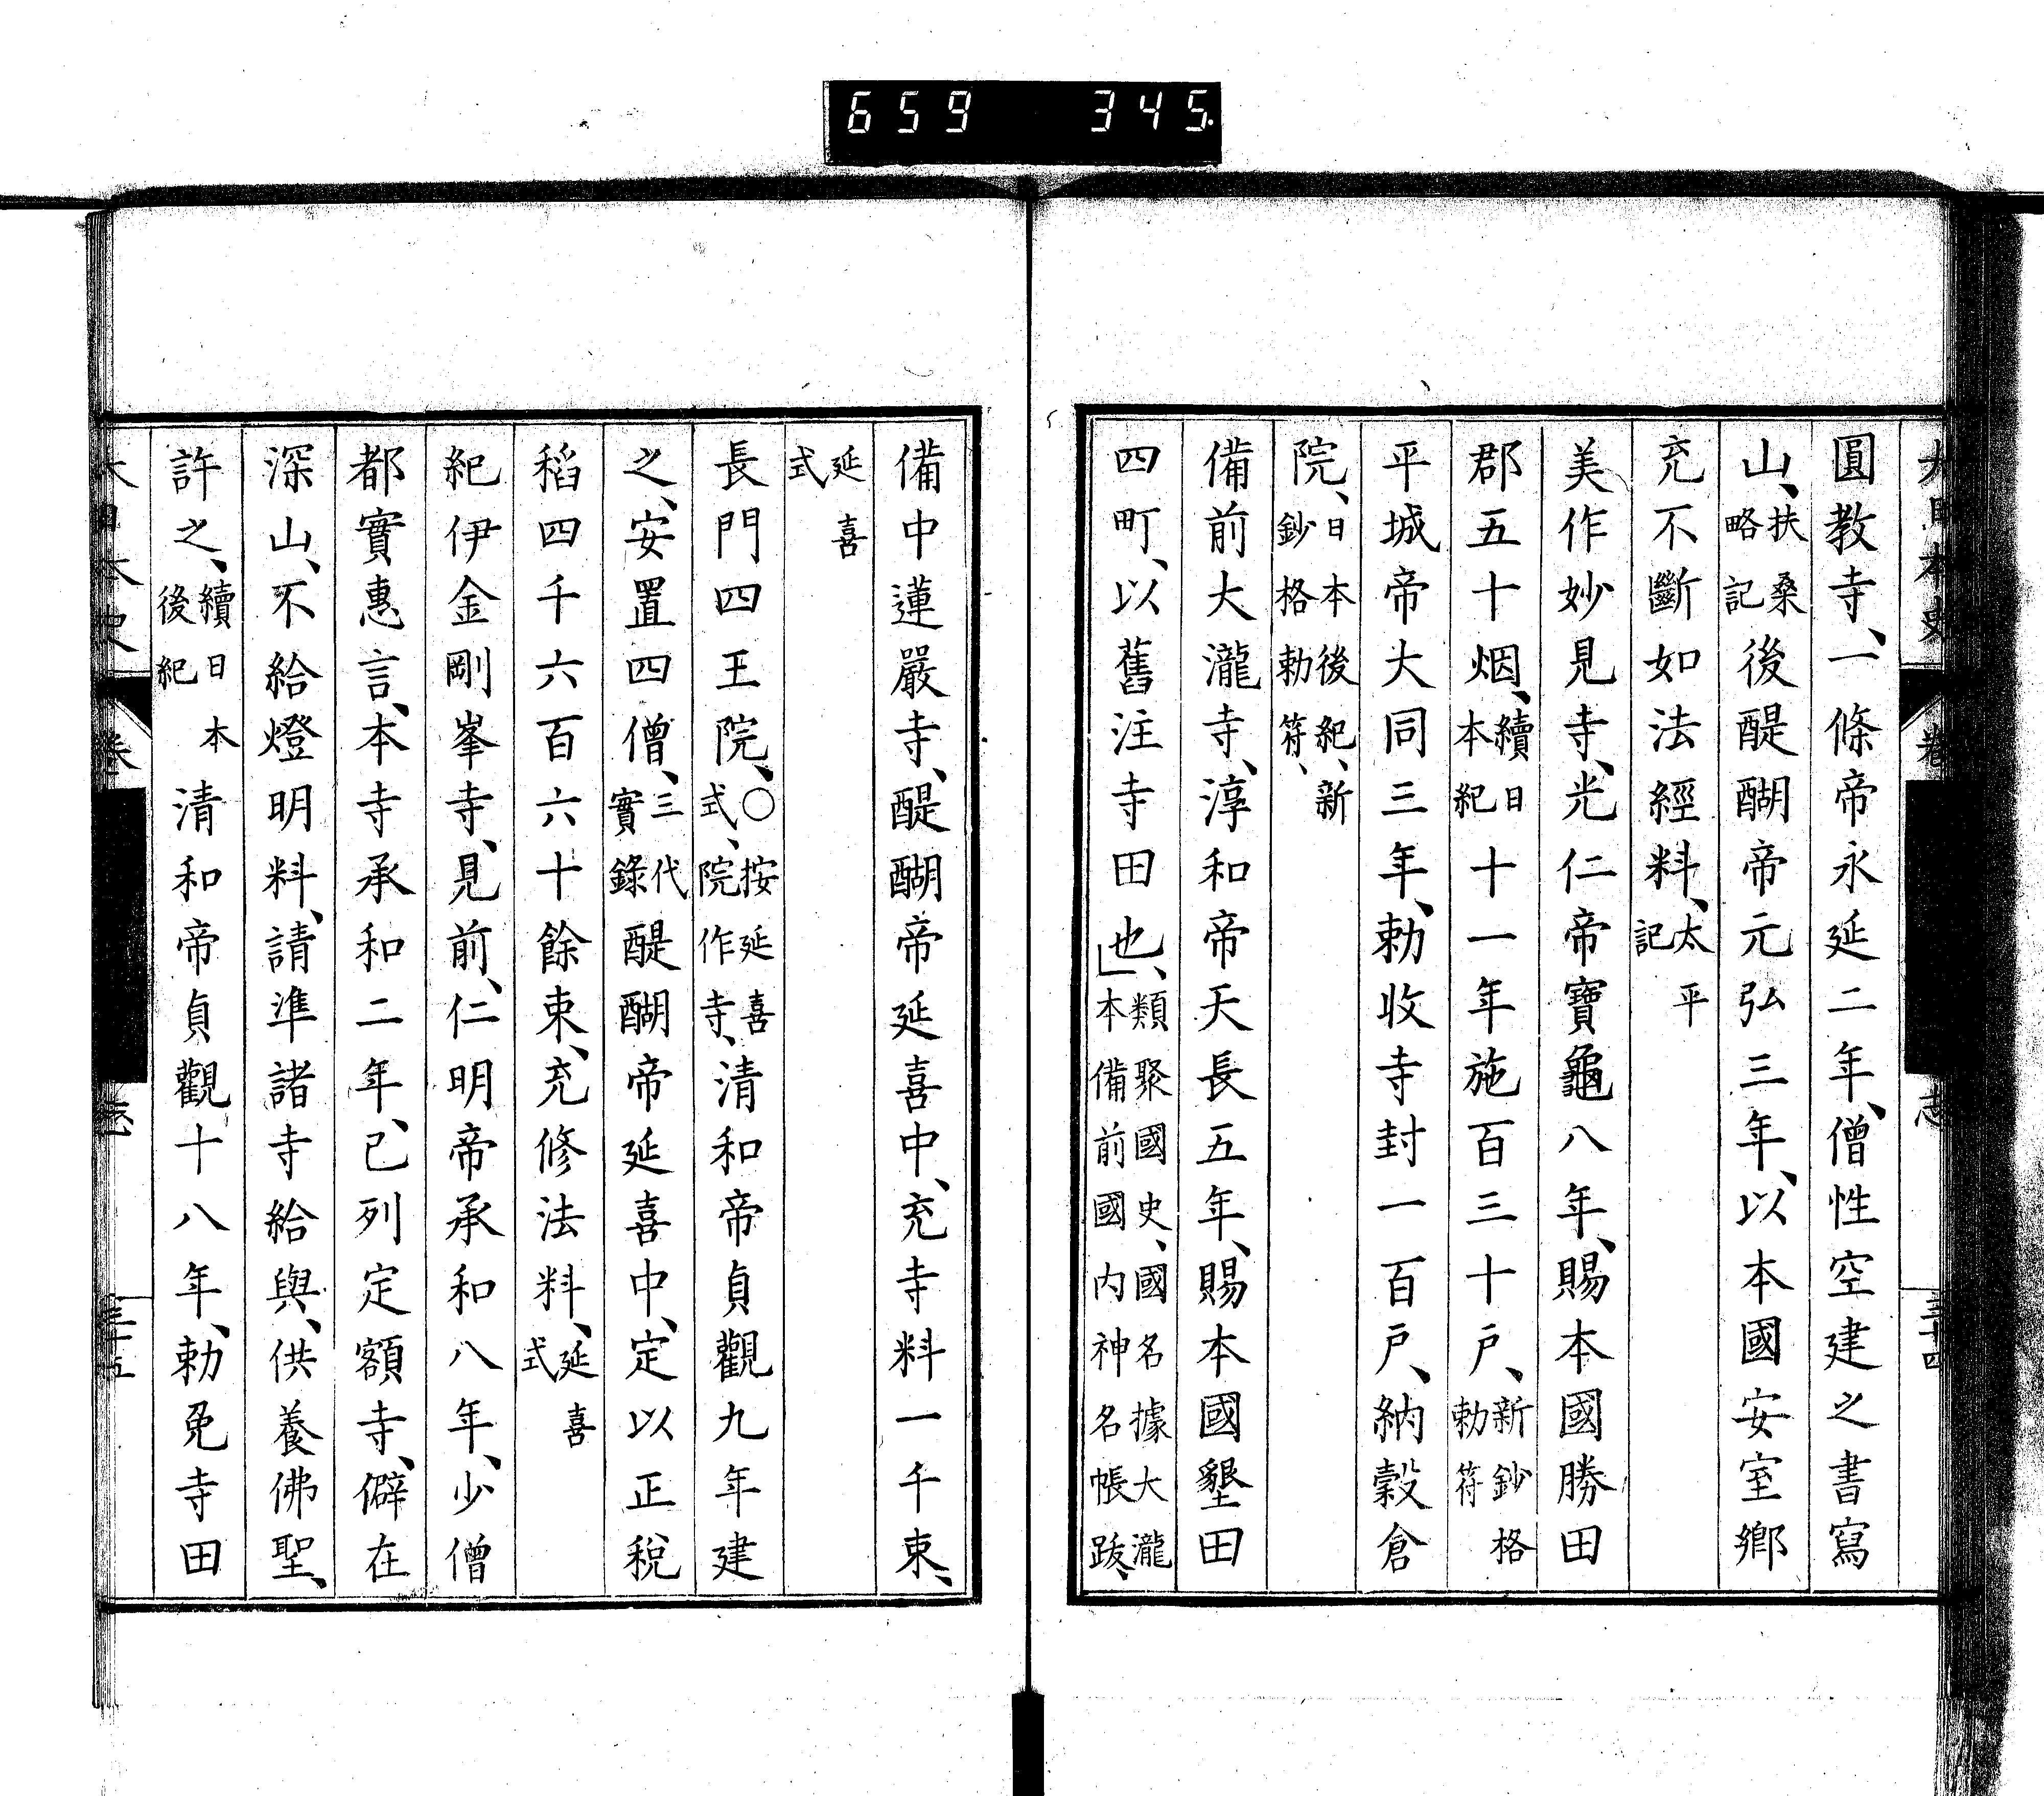 659 345
大日本史 卷 志 三十四
圓教寺、一條帝永延二年、僧性空建之書寫
山、扶桑略記後醍醐帝元弘三年、以本國安室鄉
充不斷如法經料、太平記
美作妙見寺、光仁帝寶龜八年、賜本國勝田
郡五十烟、續日本紀十一年施百三十戶、新鈔格勅符
平城帝大同三年、勅收寺封一百戶、納穀倉
院、日本後紀、新鈔格勅符、
備前大瀧寺、淳和帝天長五年、賜本國墾田
四町、以舊注寺田也、類聚國史、國名據大瀧本備前國內神名帳跋、
備中蓮嚴寺、醍醐帝延喜中、充寺料一千束、
延喜式
長門四王院、〇按延喜式、院作寺、清和帝貞觀九年建
之、安置四僧、三代實錄醍醐帝延喜中、定以正稅
稻四千六百六十餘束、充修法料、延喜式
紀伊金剛峯寺、見前、仁明帝承和八年、少僧
都實惠言、本寺承和二年、已列定額寺、僻在
深山、不給燈明料、請準諸寺給與、供養佛聖、
許之、續日本後紀清和帝貞觀十八年、勅免寺田
大日本史 卷 志 三十五